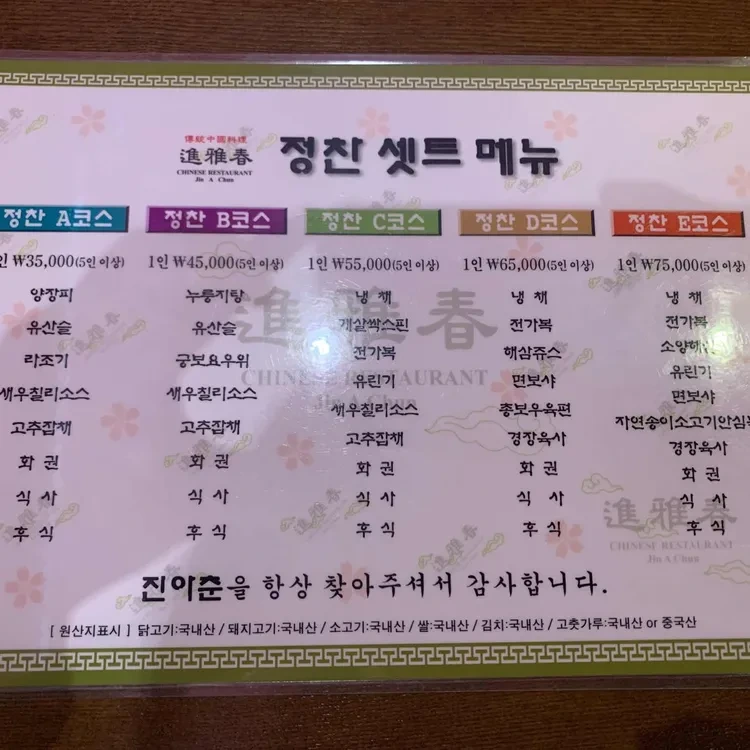 傳統中國料理
進雅春
CHINESE RESTAURANT
Jin A Chun
정찬 셋트 메뉴
정찬 A코스
인 ₩35,000(5인 이상)
양장피
유산슬
라조기
새우칠리소스
고추잡채
화 권
식 사
후 식
정찬 B코스
1인 ₩45,000(5인 이상)
누룽지탕
유산슬
궁보요우위
새우칠리소스
고추잡채
화 권
식 사
후 식
정찬 C코스
1인 ₩55,000(5인 이상)
냉 채
게살싹스핀
전가복
유린기
새우칠리소스
고추잡채
화 권
식 사
후 식
정찬 D코스
1인 ₩65,000(5인 이상)
냉 채
전가복
해삼쥬스
면보샤
총보우육편
경장육사
화 권
식 사
후 식
정찬 E코스
1인 ₩75,000(5인 이상)
냉 채
전가복
유린기
면보샤
자연송이소고기안심
경장육사
화 권
식 사
후 식
進雅春
CHINESE RESTAURANT
Jin A Chun
進雅春
CHINESE RESTAURANT
Jin A Chun
진아춘을 항상 찾아주셔서 감사합니다.
[ 원산지표시 ] 닭고기:국내산 / 돼지고기:국내산 / 소고기:국내산 / 쌀:국내산 / 김치:국내산 / 고춧가루:국내산 or 중국산